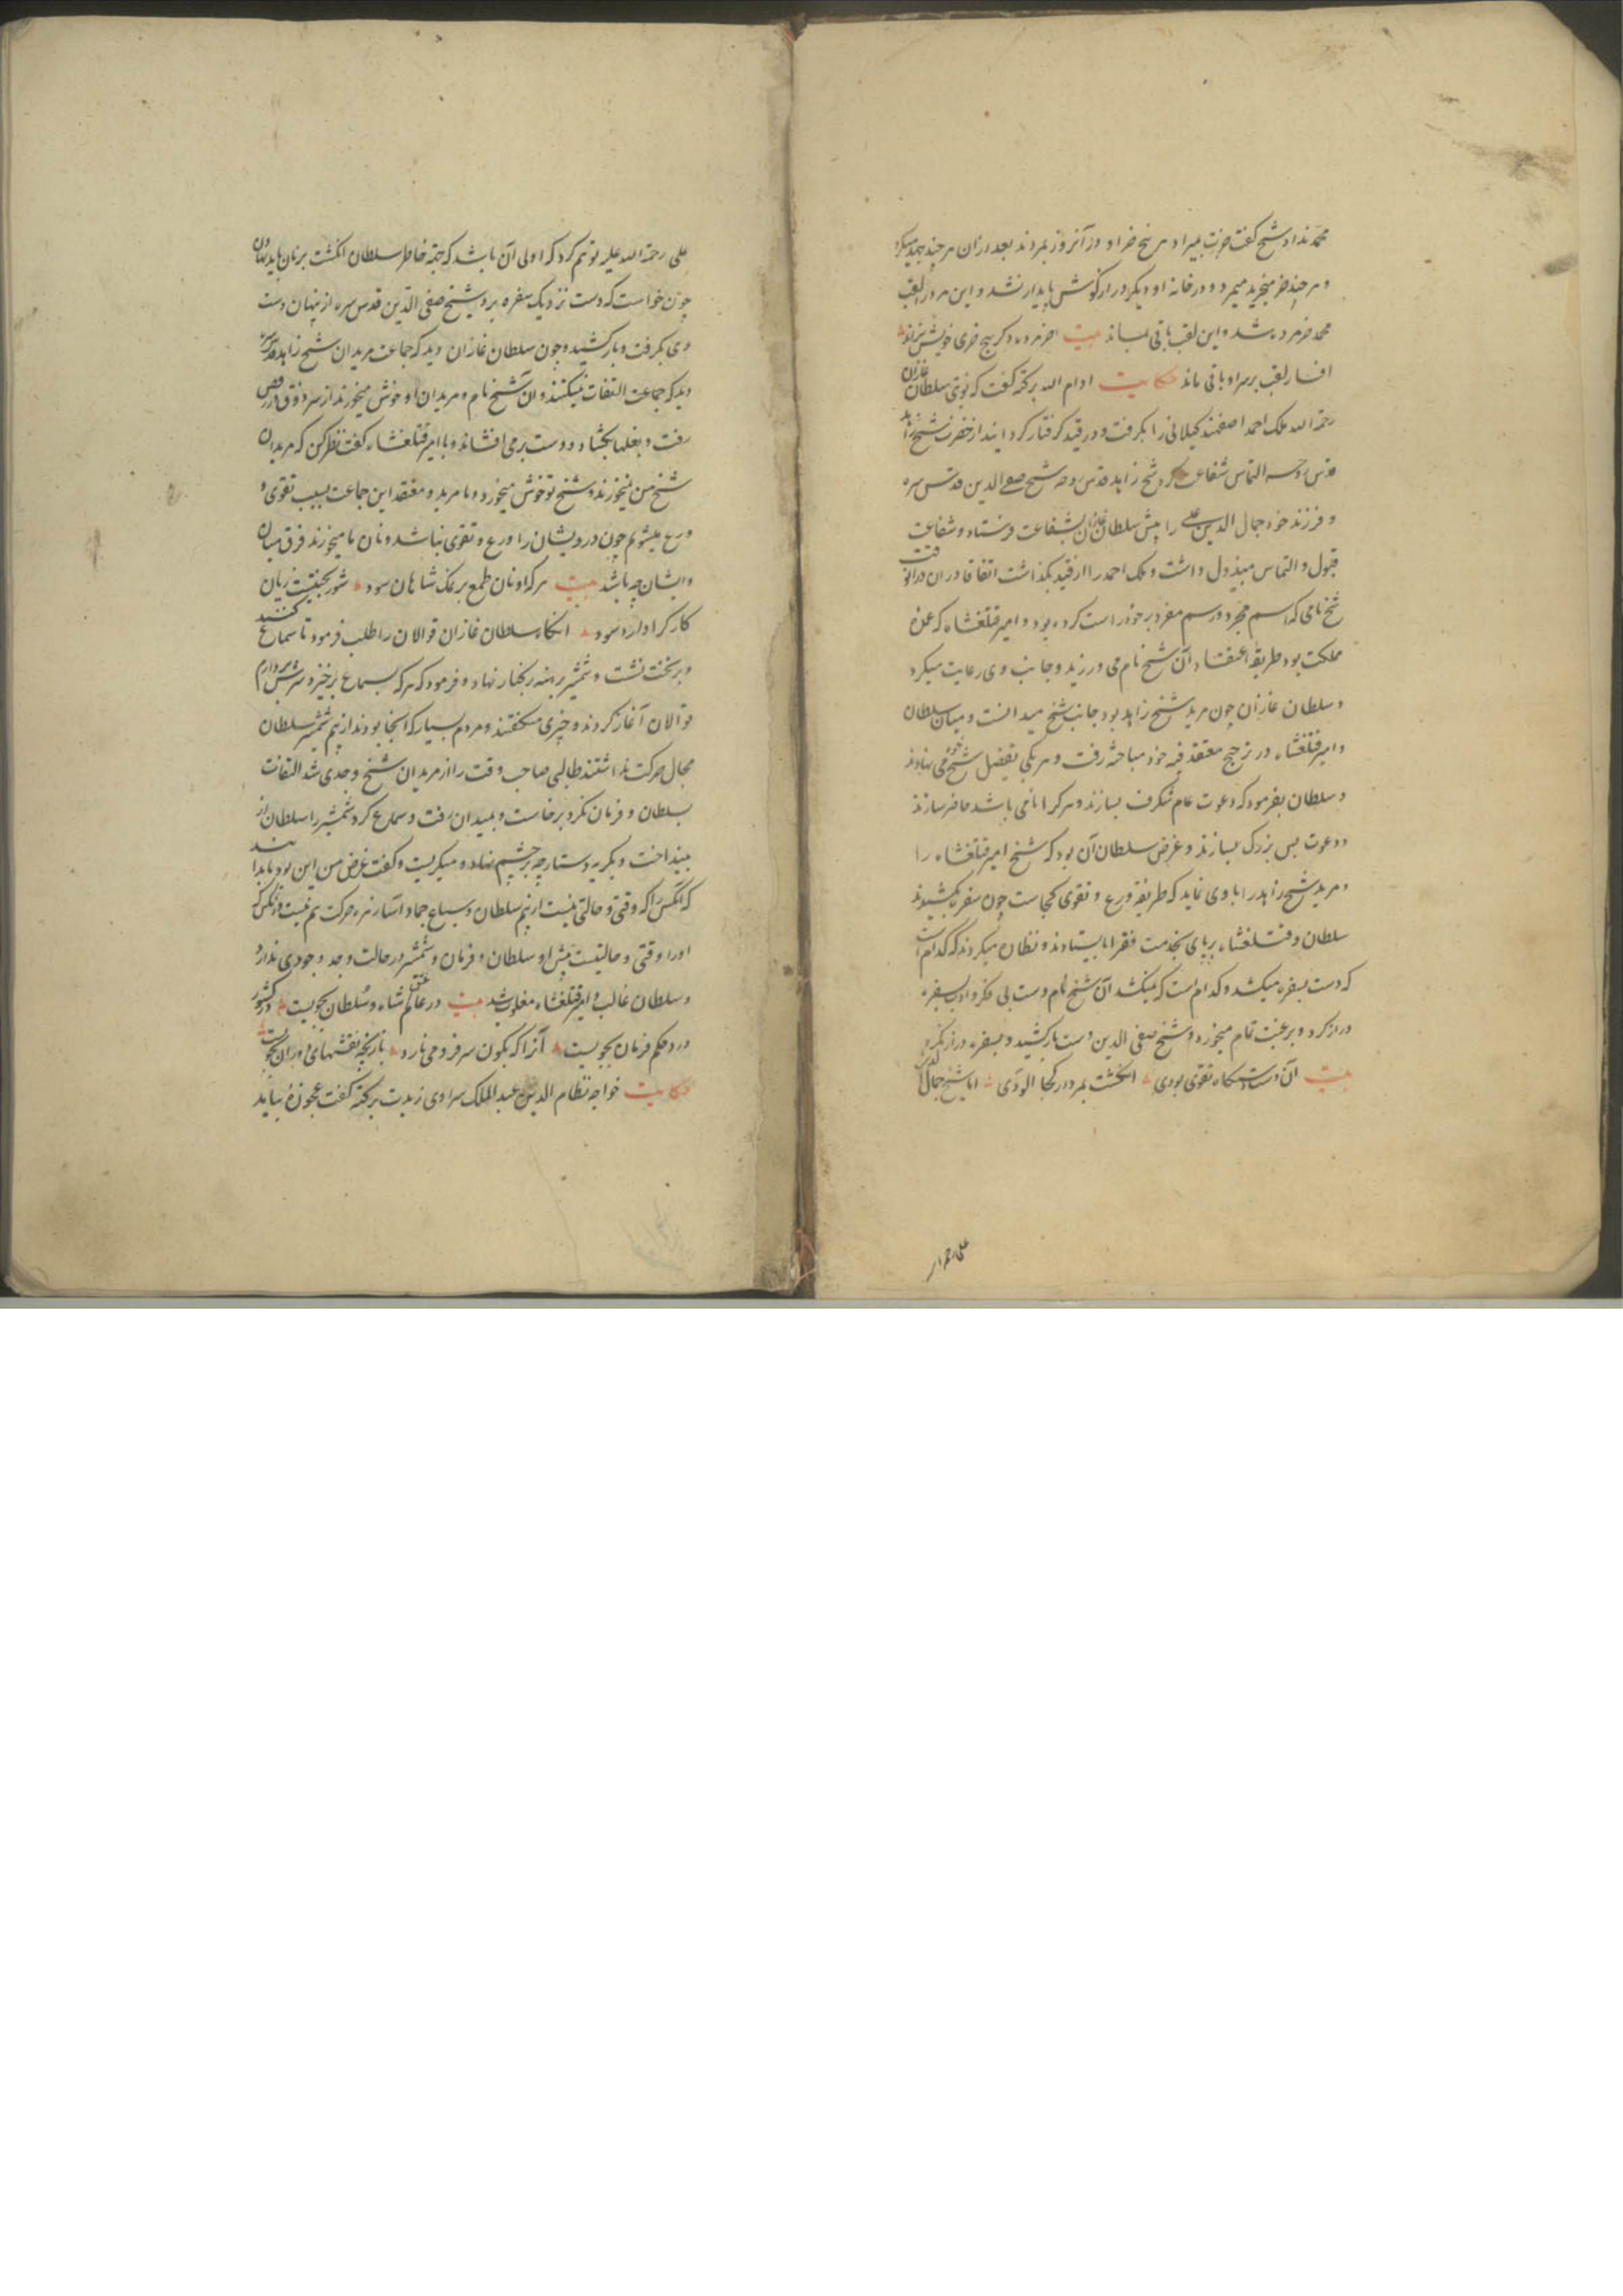 محمد نداد شیخ گفت خرت بمیراد هر پنج خر او در آنروز بمردند بعد از آن هر چند جهد میکرد
و هر چند خر میخرید میمرد و در خانه او دیگر درازگوش پایدار نشد و این مرد را لقب
محمد خرمرده شد و این لقب باقی بماند بیت
افسار لقب بر سر او باقی ماند حکایت ادام الله برکته گفت که نوبتی سلطان غازان
رحمة الله ملک احمد اصفهبد گیلانی را بگرفت و در قید گرفتار گردانید از حضرت شیخ زاهد
قدس روحه التماس شفاعت کرد شیخ زاهد قدس روحه شیخ صفی الدین قدس سره
و فرزند خود جمال الدین علی را پیش سلطان غازان بشفاعت فرستاد و شفاعت
قبول و التماس مبذول داشت و ملک احمد را از قید بگذاشت اتفاقا در آن وقت در اردو
شیخ نامی که اسم مجرد و رسم مفرد بر خود راست کرده بود و امیر قتلغشاه که عمده
مملکت بود طریق اعتقاد آن شیخ نام می ورزید و جانب وی رعایت میکرد
و سلطان غازان چون مرید شیخ زاهد بود جانب شیخ میدانست و میان سلطان
و امیر قتلغشاه در ترجیح معتقد فیه خود مباحثه رفت و هر یکی تفضیل شیخ خود می نهادند
و سلطان بفرمود که دعوت عام شگرف بسازند و هر کرا نامی باشد حاضر سازند
و دعوت بس بزرگ بسازند و غرض سلطان آن بود که شیخ امیر قتلغشاه را
و مرید شیخ زاهد را با وی نماید که طریقه ورع و تقوی کجاست چون سفره بکشیدند
سلطان و قتلغشاه برپای بخدمت فقرا بایستادند و نظاره میکردند که کدام است
که دست بسفره میکشد و کدام است که نمیکشد آن شیخ نام دست بی فکر و ادب بسفره
دراز کرد و برغبت تمام میخورد و شیخ صفی الدین دست بازکشید و بسفره دراز نکرد
بیت آن دست که دستگاه تقوی بودی انگشت بمردار کجا آلودی اما شیخ جمال الدین
علی رحمة الله
علی رحمة الله علیه توهم کرد که اولی آن باشد که جهة خاطر سلطان انگشت بر نان باید نهادن
چون خواست که دست نزدیک سفره برد شیخ صفی الدین قدس سره از پنهان دست
وی بگرفت و بازکشید و چون سلطان غازان دید که جماعت مریدان شیخ زاهد قدس سره
دید که جماعت التفات نمیکنند و آن شیخ نام و مریدان او خوش میخورند از سر ذوق در رقص
رفت و بغلها بگشاد و دست برمی افشاند و با امیر قتلغشاه گفت نظر کن که مریدان
شیخ من نمیخورند و شیخ تو خوش میخورد و ما مرید و معتقد این جماعت بسبب تقوی و
ورع میشویم چون درویشان را ورع و تقوی نباشد و نان ما میخورند فرق میان ما
و ایشان چه باشد بیت هر که او نان طمع بر نمک شاهان سود شور بختیست
انگاه سلطان غازان قوالان را طلب فرمود تا سماع کنند
و بر تخت نشست و شمشیر برهنه بر کنار نهاد و فرمود که هر که بسماع برخیزد سرش بردارم
قوالان آغاز کردند و چیزی میگفتند و مردم بسیار که آنجا بودند از بیم شمشیر سلطان
مجال حرکت نداشتند طالبی صاحب وقت را از مریدان شیخ وجدی شد التفات
بسلطان و فرمان نکرد برخاست و بمیدان رفت و سماع کرد شمشیر را سلطان از
بینداخت و بگریه دستارچه بر چشم نهاد و میگریست و گفت غرض من این بود تا بدانند
که آنکس را که وقتی و حالتی نیست از بیم سلطان
او را وقتی و حالتیست پیش او سلطان و فرمان و شمشیر در حالت وجد وجودی ندارد
و سلطان غالب و امیر قتلغشاه مغلوب شد بیت در عالم عشق شاه و سلطان بجویست در کشور
درد حکم فرمان بجویست آنرا که بکون سر فرو می نارد بازیچه نقشهای دوران بجویست
حکایت خواجه نظام الدین عبد الملک سراوی زیدت برکته گفت عجوزه بیاید